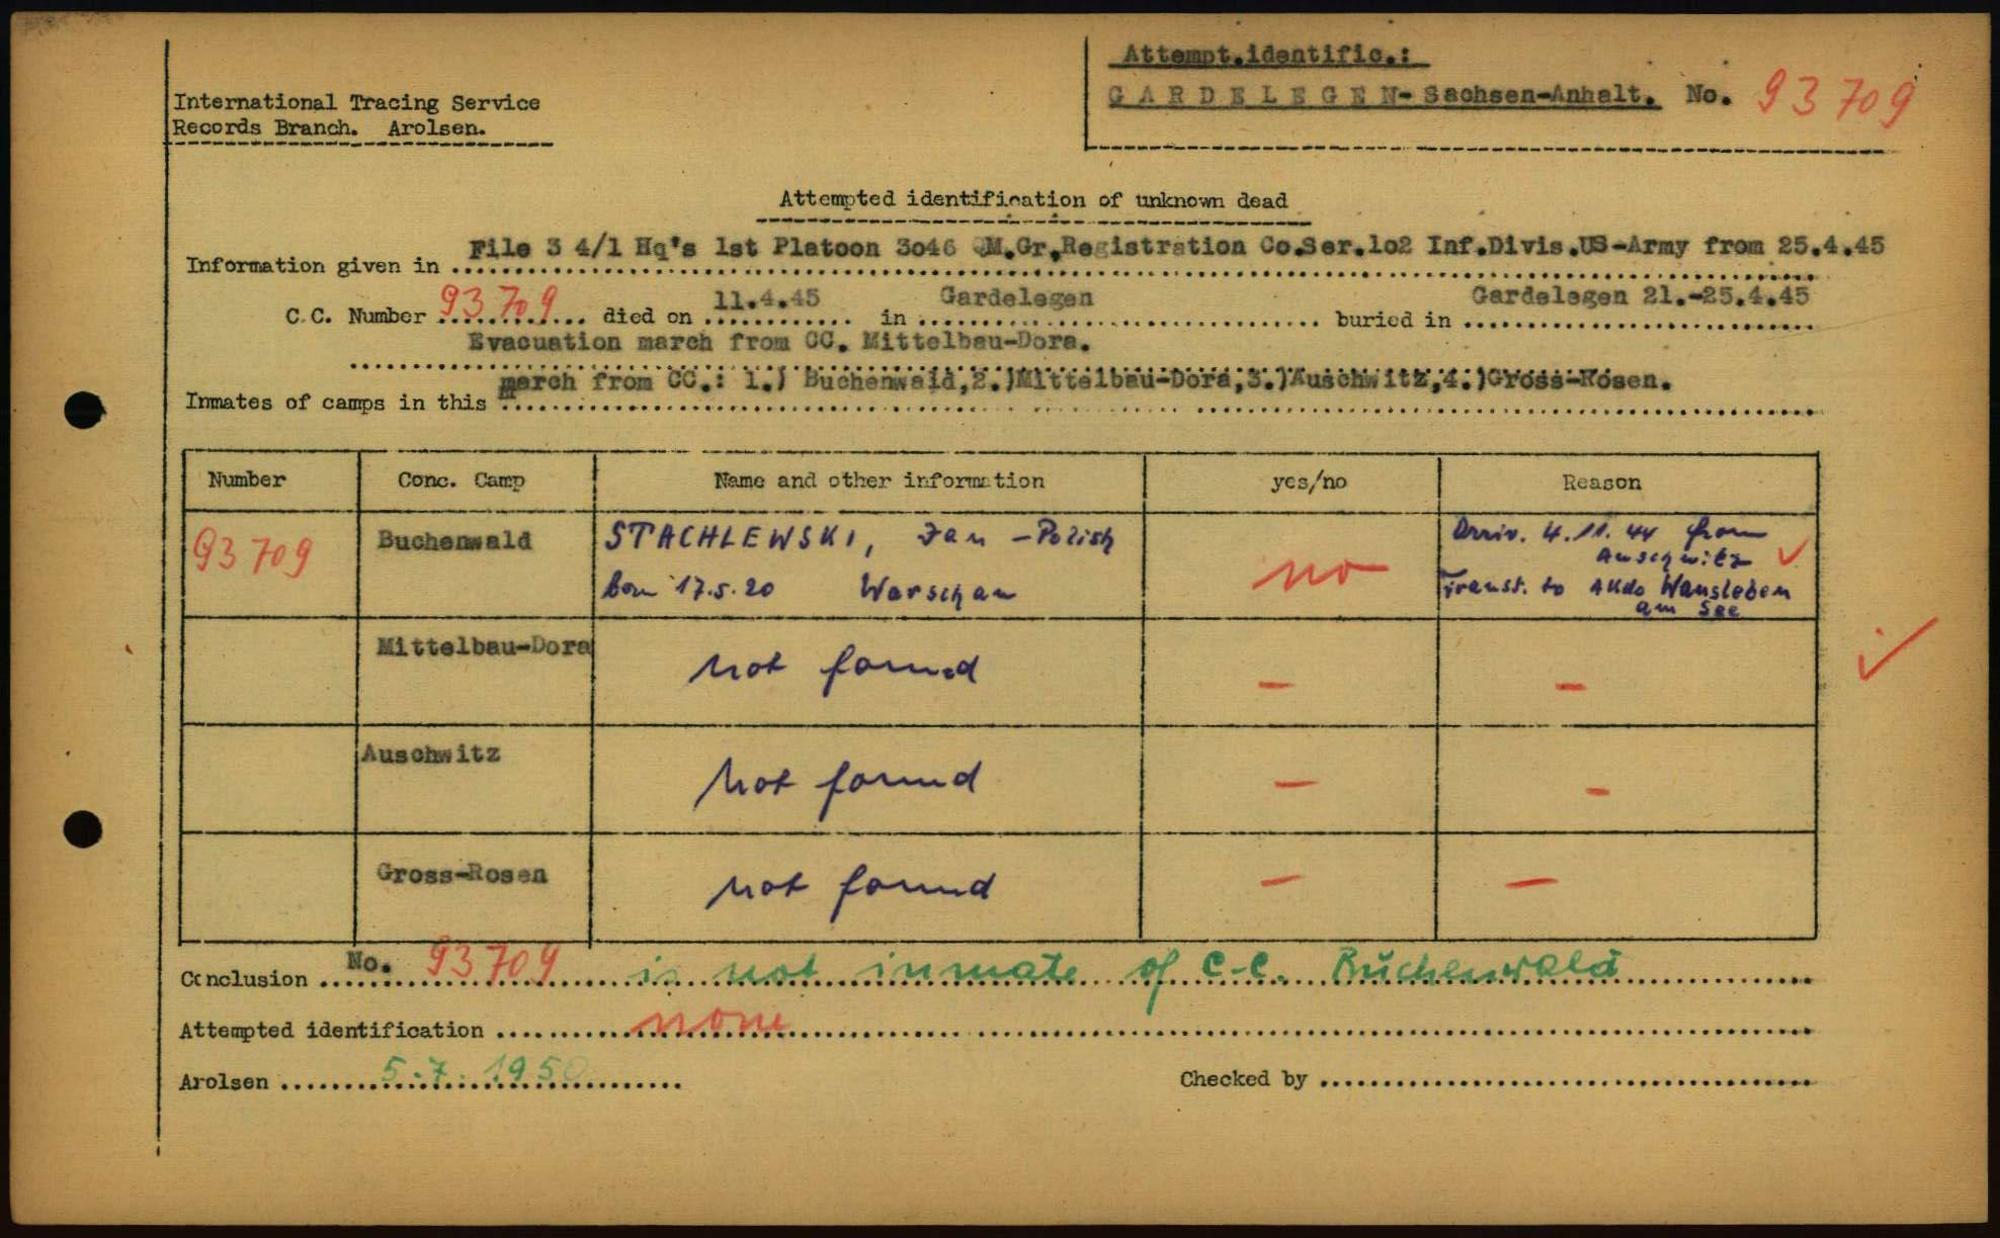 Attempt.identific.:
G A R D E L E G E N- Sachsen-Anhalt. No. 93709
International Tracing Service
Records Branch. Arolsen.
Attempted identification of unknown dead
Information given in File 3 4/1 Hq's 1st Platoon 3o46 QM.Gr.Registration Co.Ser.1o2 Inf.Divis.US-Army from 25.4.45
C.C. Number 93709 died on 11.4.45 in Gardelegen buried in Gardelegen 21.-25.4.45
Evacuation march from CC. Mittelbau-Dora.
Inmates of camps in this march from CC.: 1.) Buchenwald,2.)Mittelbau-Dora,3.)Auschwitz,4.)Gross-Rosen.
Number Conc. Camp Name and other information yes/no Reason
93709 Buchenwald STACHLEWSKI, Jan - Polish no Arriv. 4.11.44 from
Auschwitz
born 17.5.20 Warschau Transt. to AKdo Wansleben
am See
Mittelbau-Dora not found - -
Auschwitz not found - -
Gross-Rosen not found - -
Conclusion No. 93709 is not inmate of C.C. Buchenwald
Attempted identification none
Arolsen 5.7.1950 Checked by